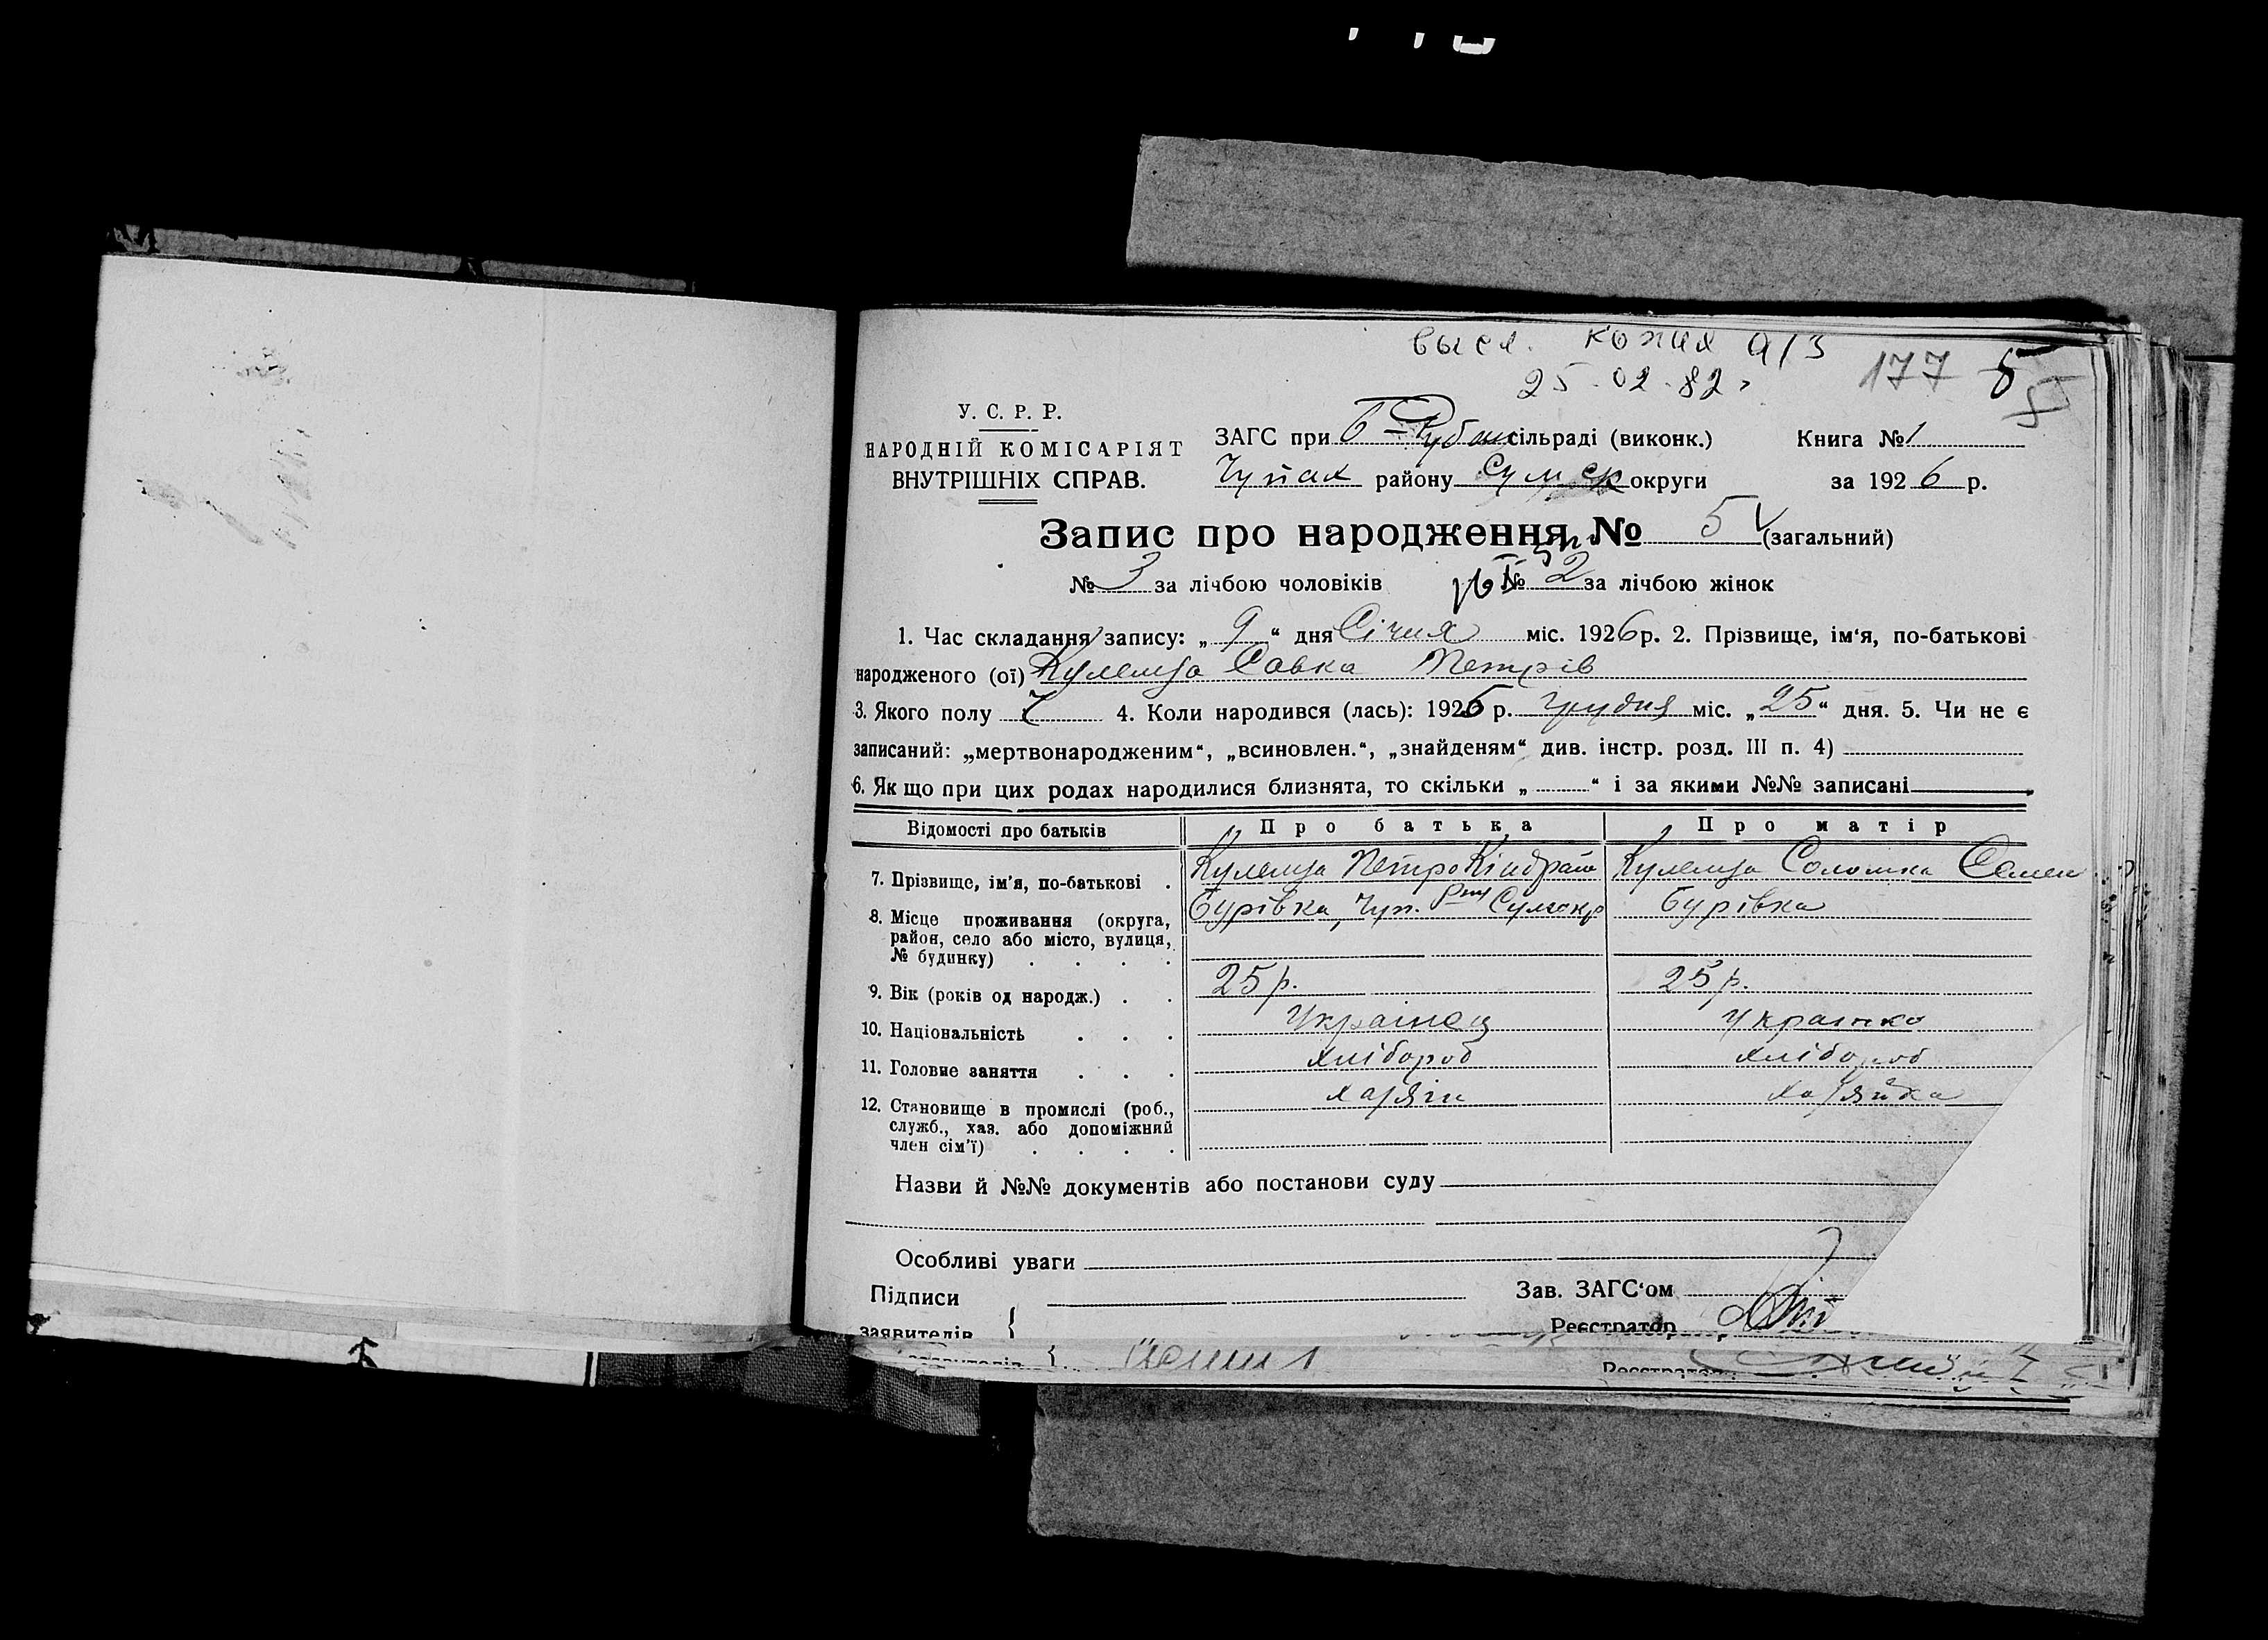 высл. копия а/з
25-02-82г
177 5
У. С. Р. Р.
НАРОДНІЙ КОМІСАРІЯТ
ВНУТРІШНІХ СПРАВ.
ЗАГС при сільраді (виконк.) Книга № 1
Чупах району Сумск округи за 1926 р.
Запис про народження № 5 (загальний)
№ 3 за лічбою чоловіків № 2 за лічбою жінок
1. Час складання запису: „ 9 “ дня Січня міс. 1926 р. 2. Прізвище, ім‘я, по-батькові
народженого (ої) Кулемза Савка Петрів
3. Якого полу Ч 4. Коли народився (лась): 1925 р. грудня міс. „ 25 “ дня. 5. Чи не є
записаний: „мертвонародженим“, „всиновлен.“, „знайденям“ див. інстр. розд. III п. 4)
6. Як що при цих родах народилися близнята, то скільки „ “ і за якими №№ записані
Відомості про батьків Про батька Про матір
7. Прізвище, ім’я, по-батькові . Кулемза Петро Кіндрат Кулемза Соломка Семен
8. Місце проживання (округа, район, село або місто, вулиця, № будинку) . . . . Бурівка, Чуп. Бурівка
9. Вік (років од народж.) . . 25 р. 25 р.
10. Національність . . . Українец Українка
11. Головне заняття . . . хлібороб хлібороб
12. Становище в промислі (роб., служб., хаз. або допоміжний член сім’ї) . . . . хазяін хазяйка
Назви й №№ документів або постанови суду
Особливі уваги
Підписи Зав. ЗАГС‘ом
заявителів { Реєстратор
заявителів { Реєстратор